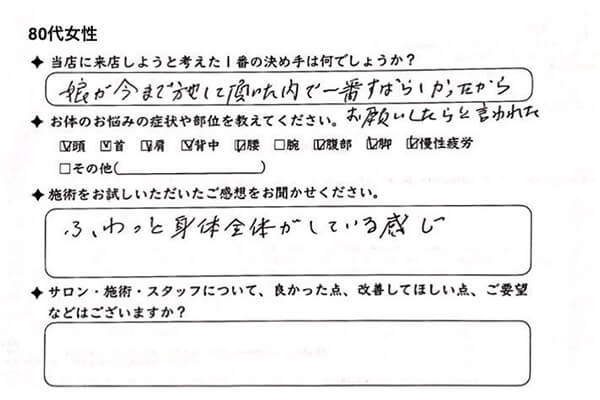 80代女性
✦ 当店に来店しようと考えた1番の決め手は何でしょうか？
娘が今まで施して頂いた内で一番すばらしかったから
お願いしたらと言われた
✦ お体のお悩みの症状や部位を教えてください。
☑頭 ☑首 ☑肩 ☑背中 ☑腰 □腕 ☑腹部 ☑脚 ☑慢性疲労
□その他( )
✦ 施術をお試しいただいたご感想をお聞かせください。
ふわっと身体全体がしている感じ
✦ サロン・施術・スタッフについて、良かった点、改善してほしい点、ご要望
などはございますか？